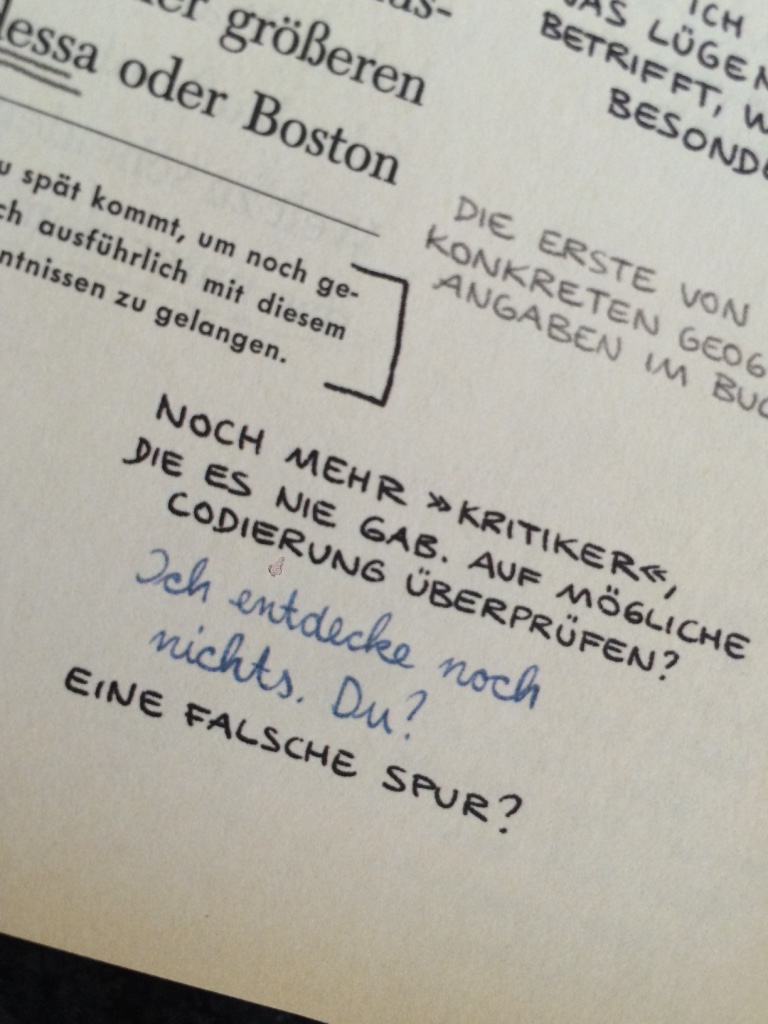 größeren
oder Boston
spät kommt, um noch ge-
ausführlich mit diesem
zu gelangen.
ICH
LÜGEN
BETRIFFT,
DIE ERSTE VON
KONKRETEN
ANGABEN IM
NOCH MEHR »KRITIKER«,
DIE ES NIE GAB. AUF MÖGLICHE
CODIERUNG ÜBERPRÜFEN?
Ich entdecke noch
nichts. Du?
EINE FALSCHE SPUR?